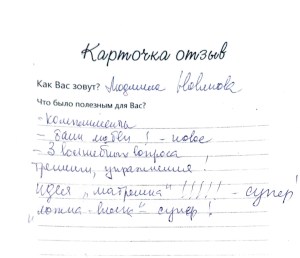 Карточка отзыв
Как Вас зовут? Людмила
Что было полезным для Вас?
- комплименты
- Баки любви! - новое
- 3 волшебных вопроса
тренинги, упражнения!
идея "матрешка" !!!!! - супер!
- супер!